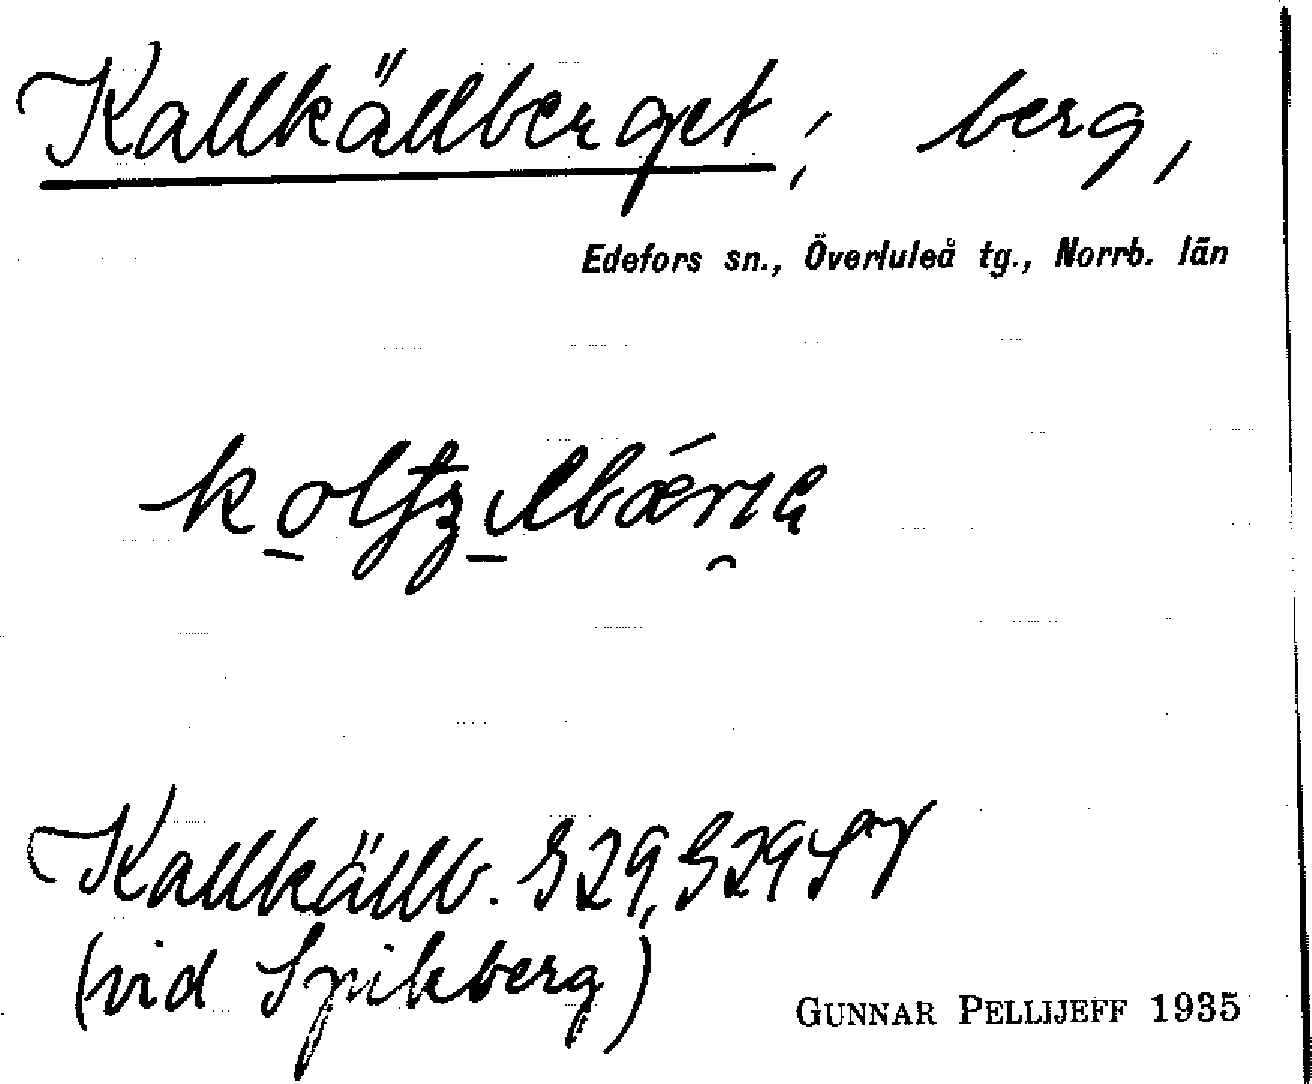 Kallkällberget; berg,
Edefors sn., Överluleå tg., Norrb. län
Kallkällb.
(vid Spikberg)
GUNNAR PELLIJEFF 1935